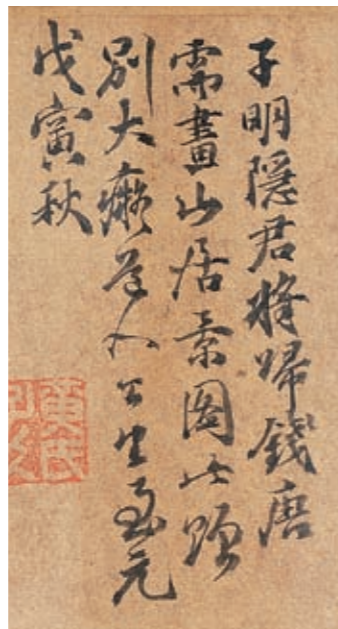 子明隱君將歸錢唐
需畫山居景圖此贈
別大癡道人公望至元
戊寅秋
黃氏